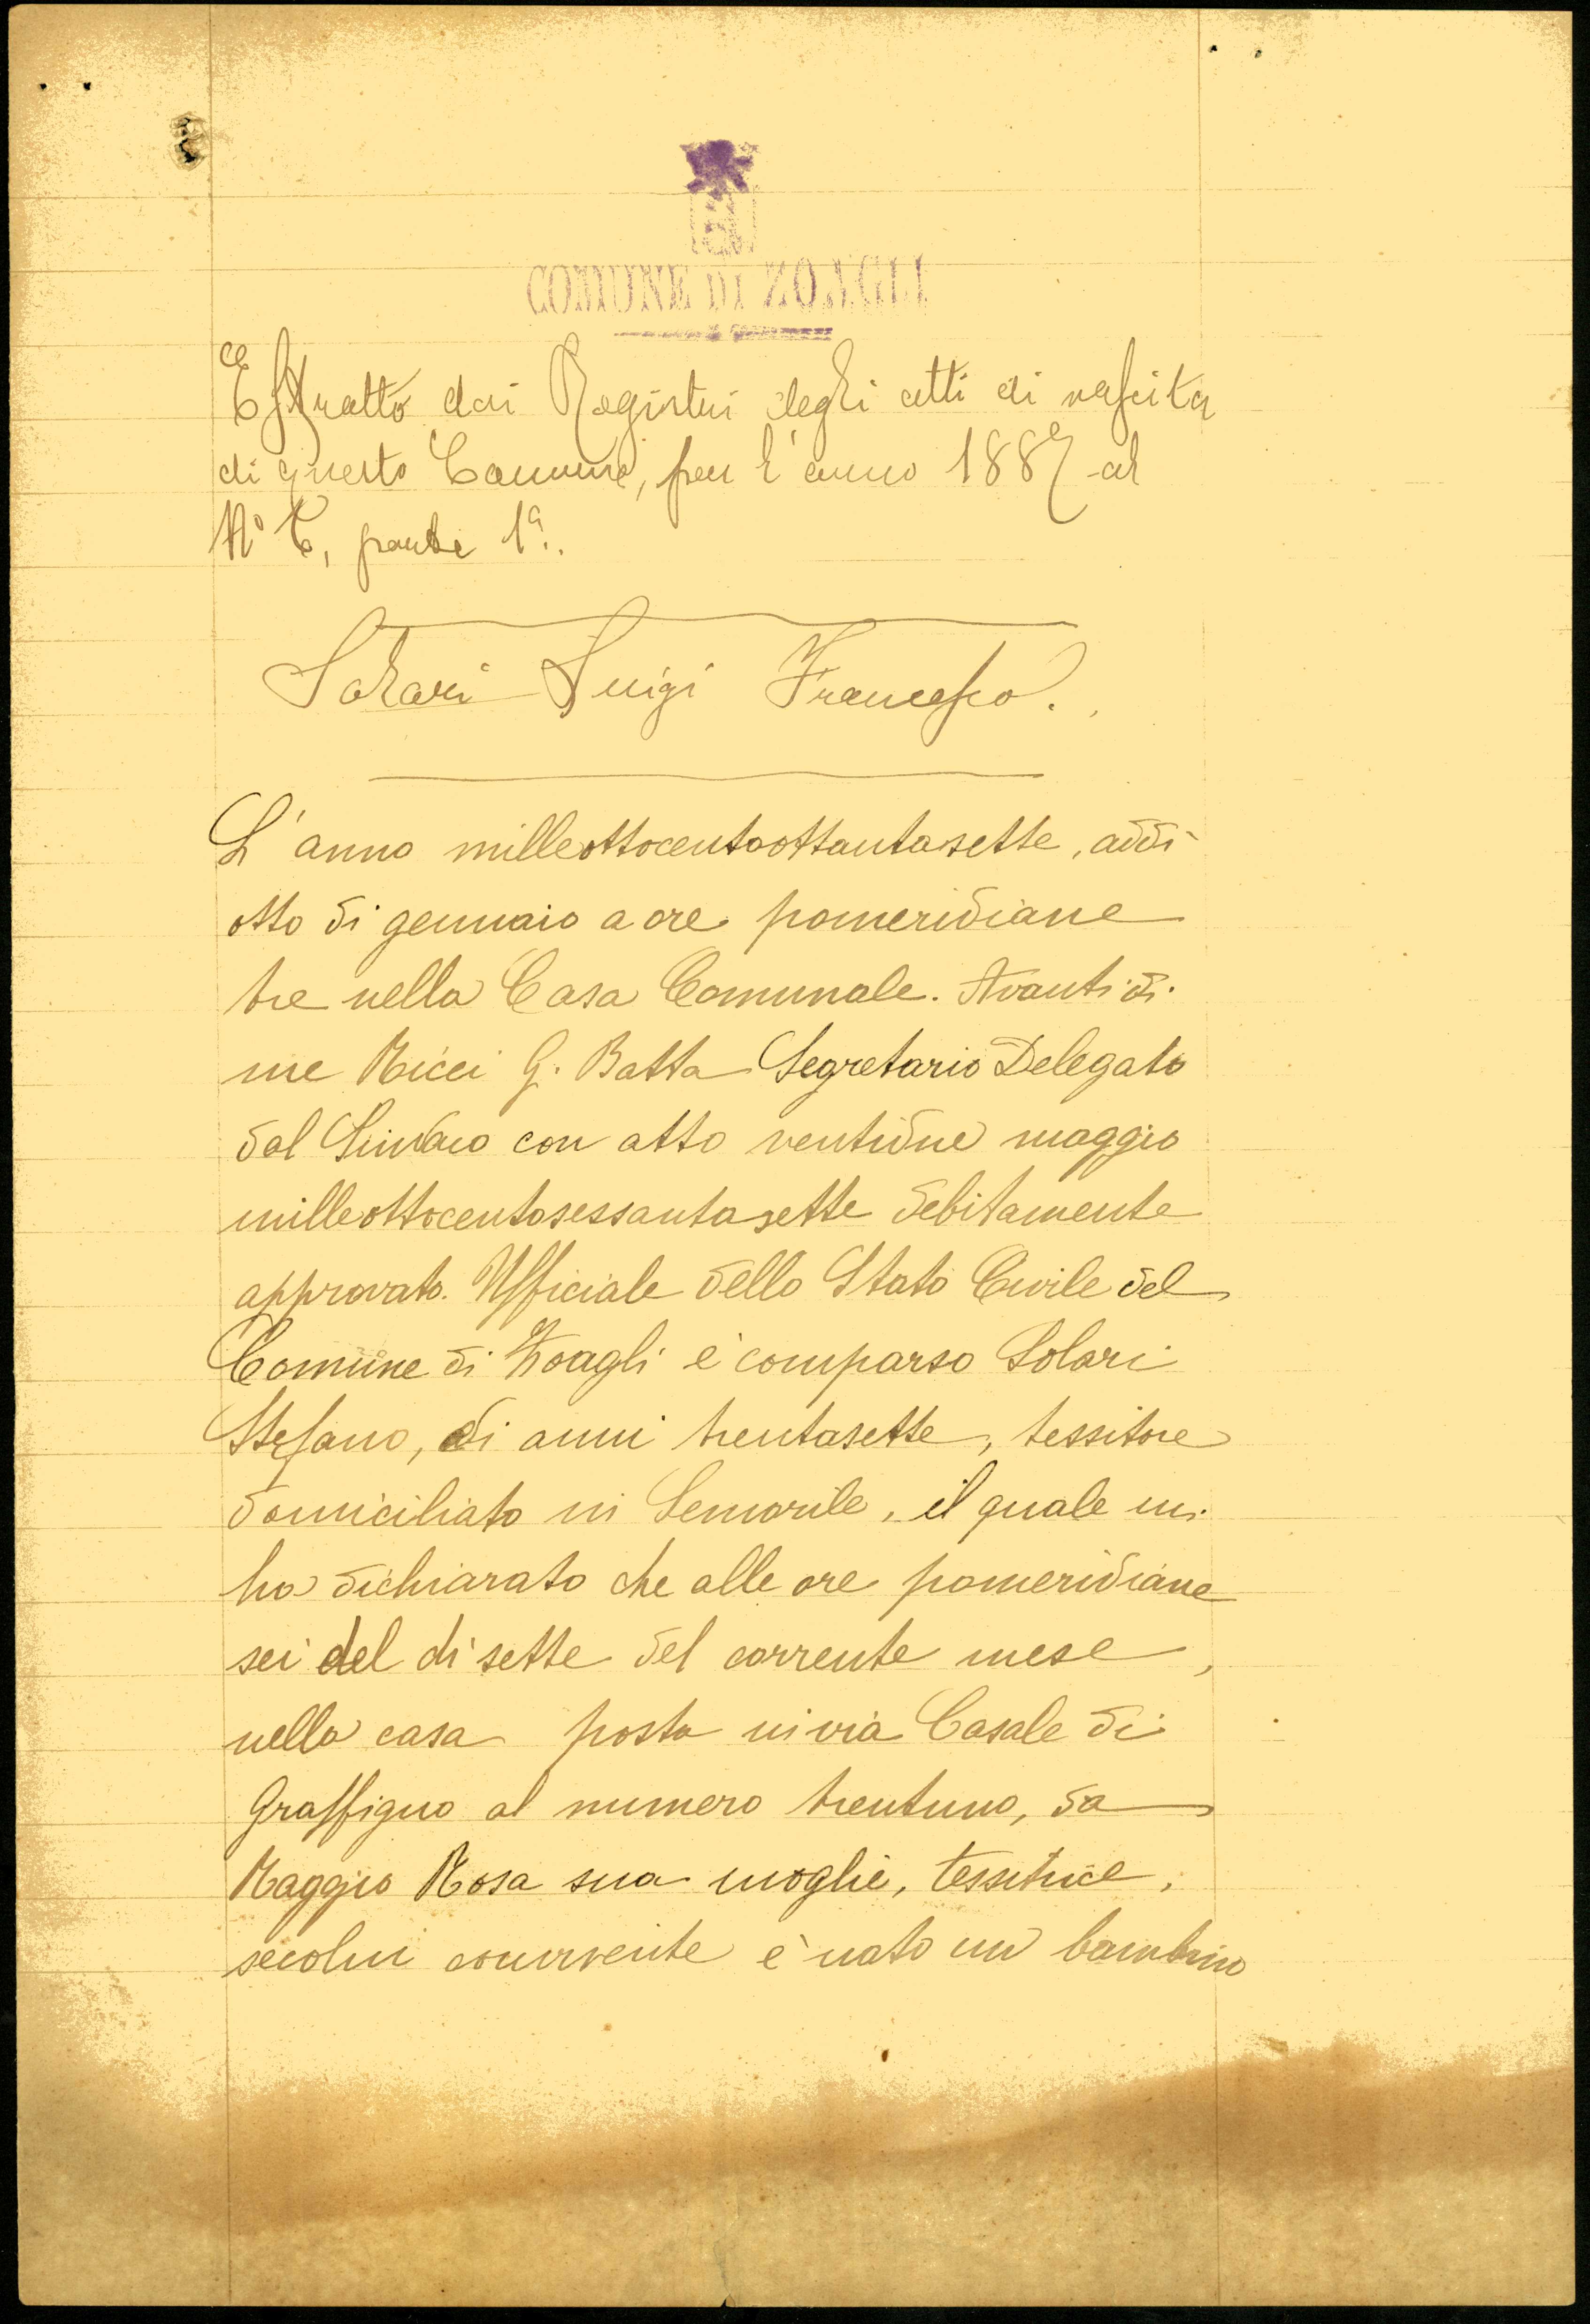 COMUNE DI ZOAGLI
Estratto dai Registri degli atti di nascita
di questo Comune, per l'anno 1887 al
N° 6, parte 1ª.
Solari Luigi Francesco.
L'anno milleottocentoottantasette, addì
otto di gennaio a ore pomeridiane
tre nella Casa Comunale. Avanti di
me Ricci G. Batta Segretario Delegato
dal Sindaco con atto ventidue maggio
milleottocentosessantasette debitamente
approvato. Ufficiale dello Stato Civile del
Comune di Zoagli è comparso Solari
Stefano, di anni trentasette, tessitore
domiciliato in Semorile, il quale mi
ha dichiarato che alle ore pomeridiane
sei del dì sette del corrente mese,
nella casa posta in via Casale di
Graffigno al numero trentuno, da
Raggio Rosa sua moglie, tessitrice,
secolui convivente è nato un bambino